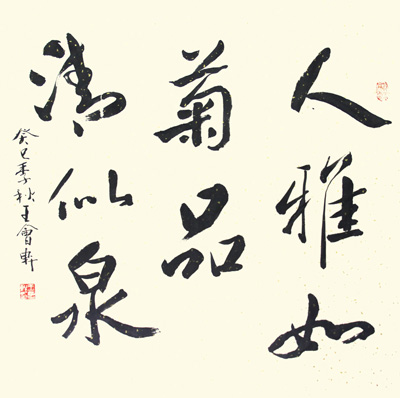 人雅如
菊品
清似泉
癸巳季秋王會軒